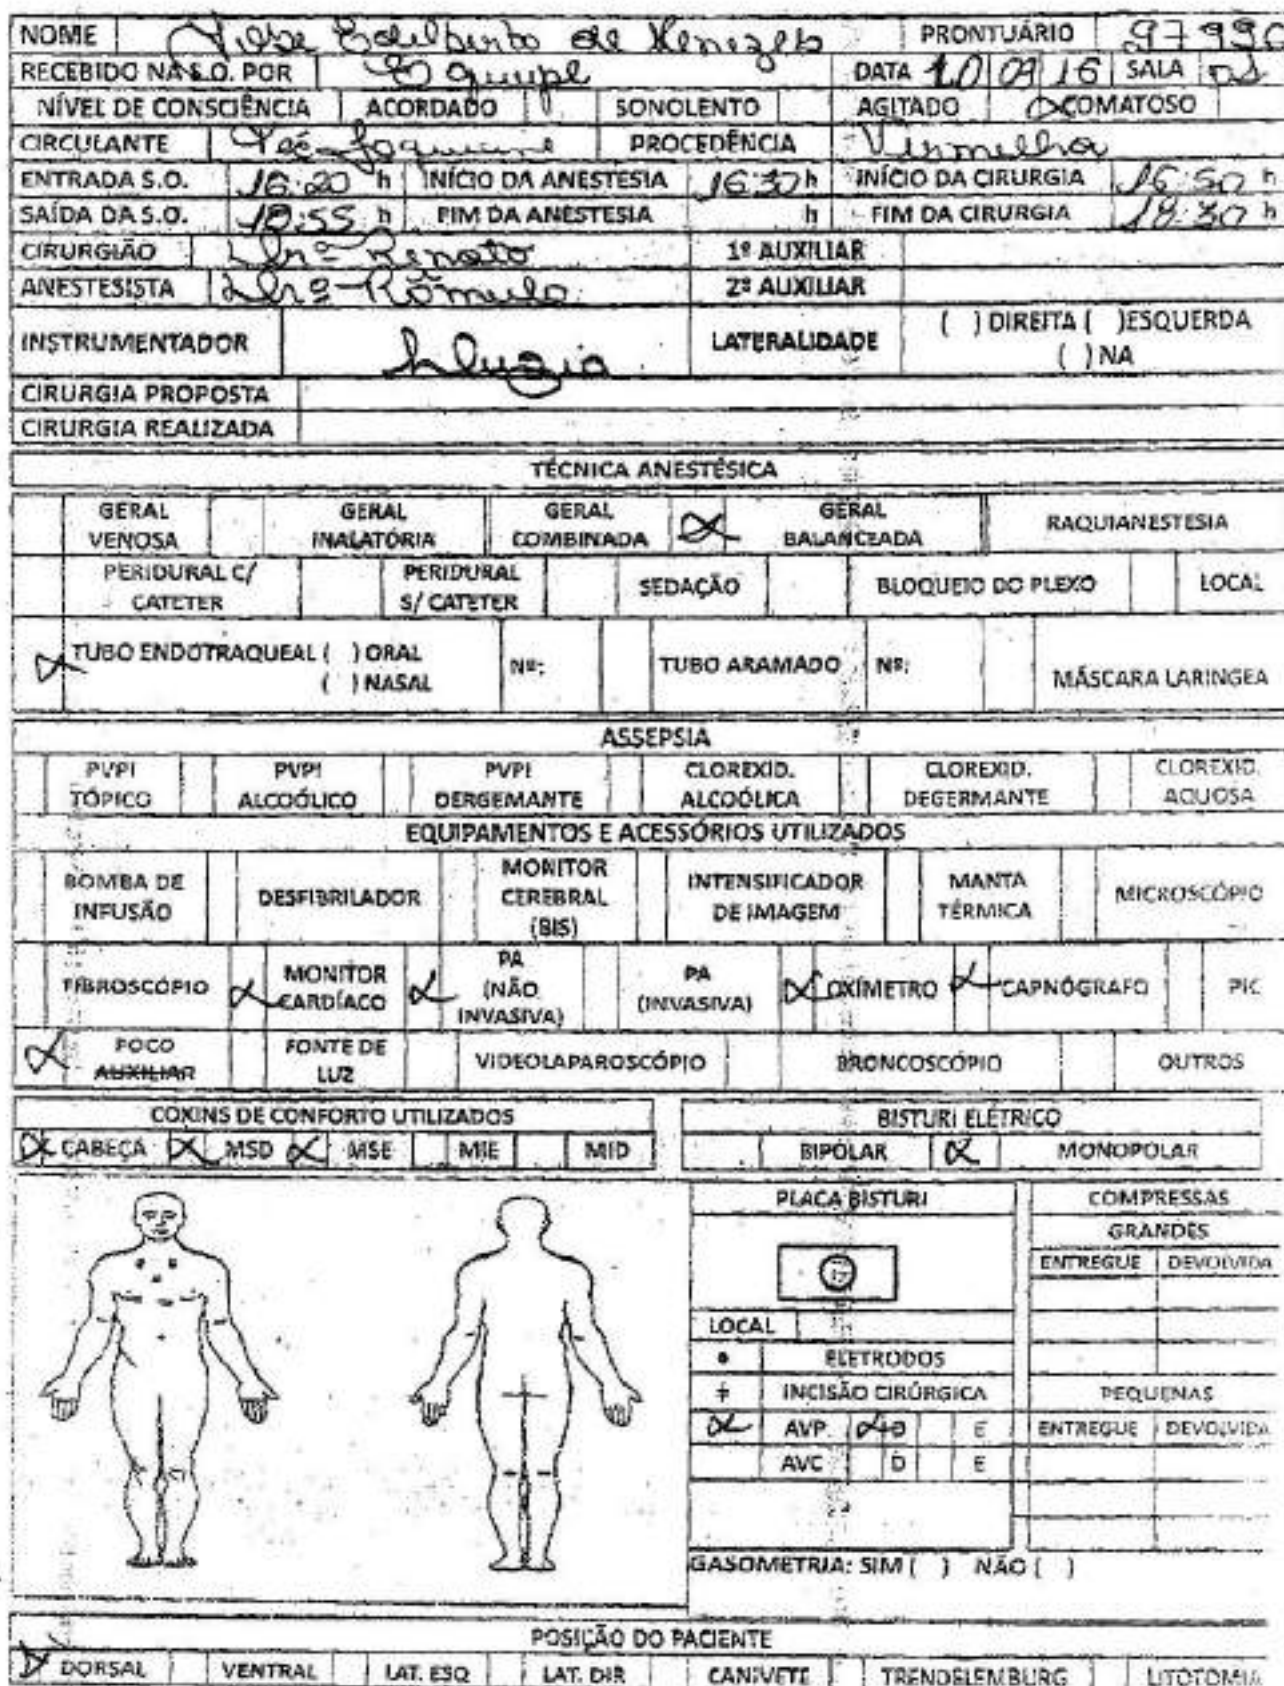 NOME Edilberto de Menezes PRONTUÁRIO 97990
RECEBIDO NA S.O. POR Equipe DATA 10 09 16 SALA 01
NÍVEL DE CONSCIÊNCIA ACORDADO SONOLENTO AGITADO X COMATOSO
CIRCULANTE PROCEDÊNCIA Vermelha
ENTRADA S.O. 16:20 h INÍCIO DA ANESTESIA 16:30 h INÍCIO DA CIRURGIA 16:50 h
SAÍDA DA S.O. :55 h FIM DA ANESTESIA h FIM DA CIRURGIA :30 h
CIRURGIÃO Drº Renato 1º AUXILIAR
ANESTESISTA Drº Rômulo 2º AUXILIAR
INSTRUMENTADOR Luzia LATERALIDADE ( ) DIREITA ( )ESQUERDA
( ) NA
CIRURGIA PROPOSTA
CIRURGIA REALIZADA
TÉCNICA ANESTÉSICA
GERAL VENOSA GERAL INALATÓRIA GERAL COMBINADA X GERAL BALANCEADA RAQUIANESTESIA
PERIDURAL C/ CATETER PERIDURAL S/ CATETER SEDAÇÃO BLOQUEIO DO PLEXO LOCAL
X TUBO ENDOTRAQUEAL ( ) ORAL Nº: TUBO ARAMADO Nº: MÁSCARA LARINGEA
( ) NASAL
ASSEPSIA
PVPI TÓPICO PVPI ALCOÓLICO PVPI DERGEMANTE CLOREXID. ALCOÓLICA CLOREXID. DEGERMANTE CLOREXID. AQUOSA
EQUIPAMENTOS E ACESSÓRIOS UTILIZADOS
BOMBA DE INFUSÃO DESFIBRILADOR MONITOR CEREBRAL (BIS) INTENSIFICADOR DE IMAGEM MANTA TÉRMICA MICROSCÓPIO
FIBROSCÓPIO X MONITOR CARDÍACO X PA (NÃO INVASIVA) PA (INVASIVA) X OXÍMETRO X CAPNÓGRAFO PIC
X FOCO AUXILIAR FONTE DE LUZ VIDEOLAPAROSCÓPIO BRONCOSCÓPIO OUTROS
COXINS DE CONFORTO UTILIZADOS BISTURI ELÉTRICO
X CABEÇA X MSD X MSE MIE MID BIPOLAR X MONOPOLAR
PLACA BISTURI COMPRESSAS
GRANDES
ENTREGUE DEVOLVIDA
LOCAL
ELETRODOS
INCISÃO CIRÚRGICA PEQUENAS
X AVP X D E ENTREGUE DEVOLVIDA
AVC D E
GASOMETRIA: SIM ( ) NÃO ( )
POSIÇÃO DO PACIENTE
X DORSAL VENTRAL LAT. ESQ LAT. DIR CANIVETE TRENDELEMBURG LITOTOMIA